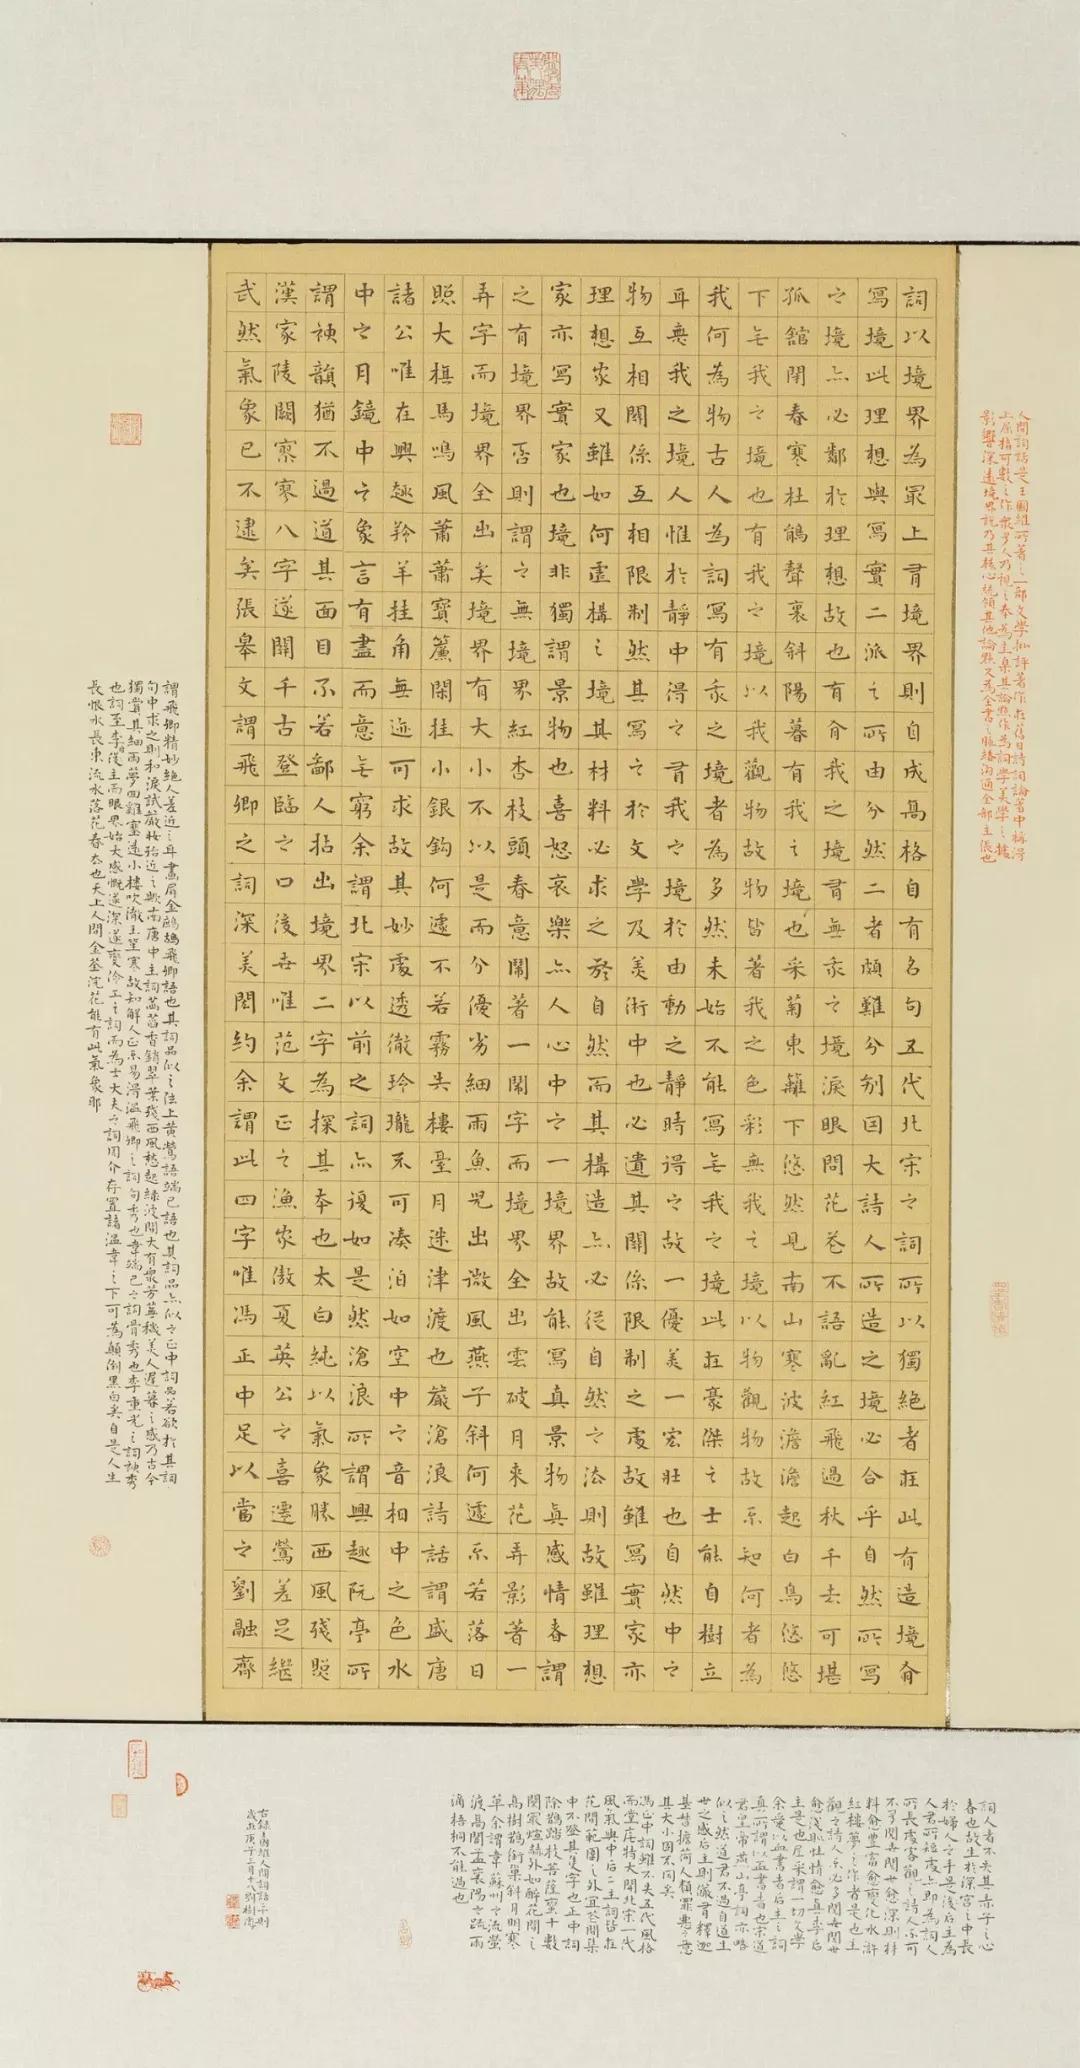 人間詞話是王國維所著之一部文學批評著作在舊日詩詞論著中稱得
上屈指可數之作衆多人乃視之奉為圭臬其論點作為詞學美學之據
影響深遠境界說乃其核心統領其他論點又為全書之脈絡溝通全部主張也
詞以境界為最上有境界則自成高格自有名句五代北宋之詞所以獨絕者在此有造境有
寫境此理想與寫實二派之所由分然二者頗難分別因大詩人所造之境必合乎自然所寫
之境亦必鄰於理想故也有有我之境有無我之境淚眼問花花不語亂紅飛過秋千去可堪
孤館閉春寒杜鵑聲裏斜陽暮有我之境也采菊東籬下悠然見南山寒波澹澹起白鳥悠悠
下無我之境也有我之境以我觀物故物皆著我之色彩無我之境以物觀物故不知何者為
我何為物古人為詞寫有我之境者為多然未始不能寫無我之境此在豪傑之士能自樹立
耳無我之境人惟於靜中得之有我之境於由動之靜時得之故一優美一宏壯也自然中之
物互相關係互相限制然其寫之於文學及美術中也必遺其關係限制之處故雖寫實家亦
理想家又雖如何虛構之境其材料必求之於自然而其構造亦必從自然之法則故雖理想
家亦寫實家也境非獨謂景物也喜怒哀樂亦人心中之一境界故能寫真景物真感情者謂
之有境界否則謂之無境界紅杏枝頭春意鬧著一鬧字而境界全出雲破月來花弄影著一
弄字而境界全出矣境界有大小不以是而分優劣細雨魚兒出微風燕子斜何遽不若落日
照大旗馬鳴風蕭蕭寶簾閑挂小銀鈎何遽不若霧失樓臺月迷津渡也嚴滄浪詩話謂盛唐
諸公唯在興趣羚羊挂角無迹可求故其妙處透徹玲瓏不可湊泊如空中之音相中之色水
中之月鏡中之象言有盡而意無窮余謂北宋以前之詞亦復如是然滄浪所謂興趣阮亭所
謂神韻猶不過道其面目不若鄙人拈出境界二字為探其本也太白純以氣象勝西風殘照
漢家陵闕寥寥八字遂關千古登臨之口後世唯范文正之漁家傲夏英公之喜遷鶯差足繼
武然氣象已不逮矣張皋文謂飛卿之詞深美閎約余謂此四字唯馮正中足以當之劉融齋
謂飛卿精妙絕人差近之耳畫屏金鷓鴣飛卿語也其詞品似之弦上黃鶯語端己語也其詞品亦似之正中詞品若欲於其詞
句中求之則和淚試嚴妝殆近之歟南唐中主詞菡萏香銷翠葉殘西風愁起綠波間大有衆芳蕪穢美人遲暮之感乃古今
獨賞其細雨夢回雞塞遠小樓吹徹玉笙寒故知解人正不易得溫飛卿之詞句秀也韋端己之詞骨秀也李重光之詞神秀
也詞至李後主而眼界始大感慨遂深遂變伶工之詞而為士大夫之詞周介存置諸溫韋之下可為顛倒黑白矣自是人生
長恨水長東流水落花春去也天上人間金荃浣花能有此氣象耶
詞人者不失其赤子之心
春也故生於深宮之中長
於婦人之手是後主為
人君所短處亦即為詞人
所長處客觀之詩人不可
不多閱世閱世愈深則材
料愈豐富愈變化水滸
紅樓夢之作者是也主
觀之詩人不必多閱世閱世
愈淺則性情愈真李后
主是也尼采謂一切文學
余愛以血書者后主之詞
真所謂以血書者也宋道
君皇帝燕山亭詞亦略
似之然道君不過自道生
世之感后主則儼有釋迦
基督擔荷人類罪惡之意
其大小固不同矣
馮正中詞雖不失五代風格
而堂廡特大開北宋一代
風氣與中后二主詞皆在
花間範圍之外宜花間集
中不登其隻字也正中詞
除鵲踏枝菩薩蠻十數
闋最煊赫外如醉花間之
高樹鵲銜巢斜月明寒
草余謂韋蘇州之流螢
渡高閣孟襄陽之疏雨
滴梧桐不能過也
右錄王國維人間詞話則
歲在庚子三月十八劉樹衛